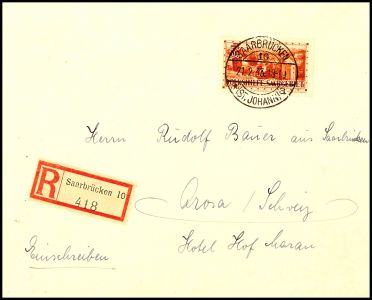 SAARBRÜCKEN
10
(ST. JOHANN)
Herrn Rudolf Bauer aus Saarbrücken
R
Saarbrücken 10
418
Arosa / Schweiz
Einschreiben
Hotel Hof Maran